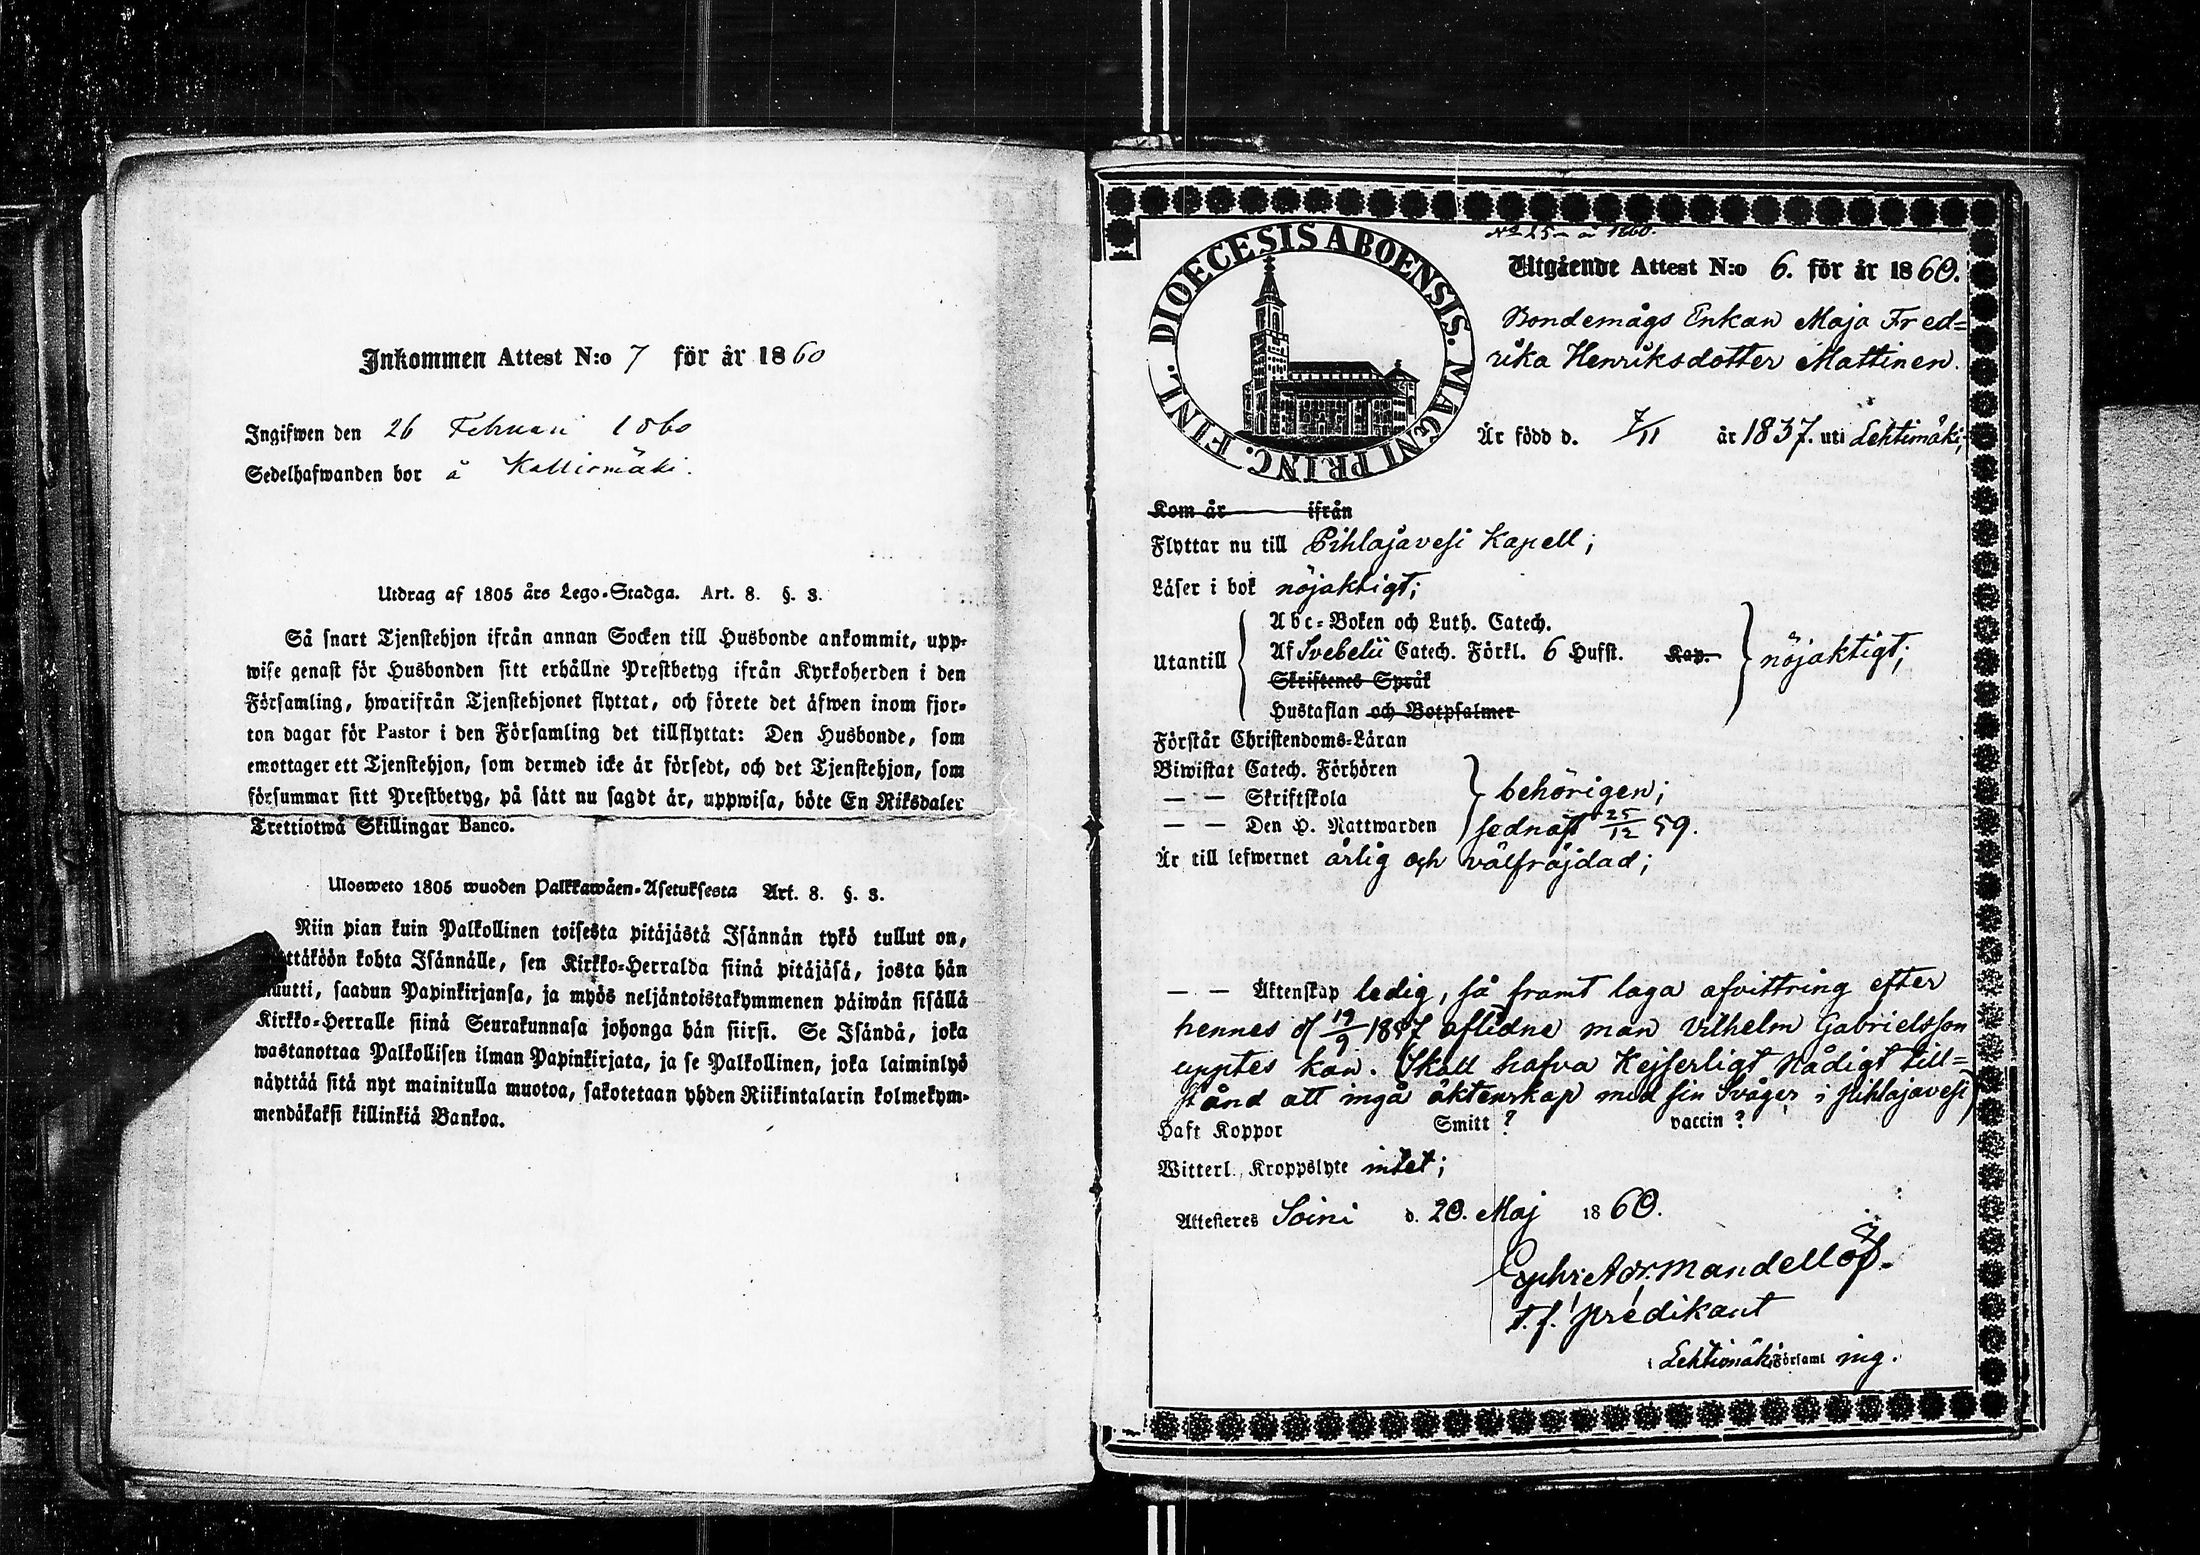 Inkommen Attest N:o 7 för år 1860
Ingifwen den 26 Februari 1860
Sedelhafwanden bor å Kalliomäki.
Utdrag af 1805 års Lego-Stadga. Art. 8. §. 3.
Så snart Tjenstehjon ifrån annan Socken till Husbonde ankommit, upp-
wise genast för Husbonden sitt erhållne Prestbetyg ifrån Kyrkoherden i den
Församling, hwarifrån Tjenstehjonet flyttat, och förete det äfwen inom fjor-
ton dagar för Pastor i den Församling det tillflyttat: Den Husbonde, som
emottager ett Tjenstehjon, som dermed icke är försedt, och det Tjenstehjon, som
försummar sitt Prestbetyg, på sätt nu sagdt är, uppwisa, böte En Riksdaler
Trettiotwå Skillingar Banco.
Uloswето 1805 wuoden Palkkawäen-Asetuksesta Art. 8. §. 3.
Niin pian kuin Palkollinen toisesta pitäjästä Isännän tykö tullut on,
kohta Isännälle, sen Kirkko-Herralda siinä pitäjäsä, josta hän
muutti, saadun Papinkirjansa, ja myös neljäntoistakymmenen päiwän sisällä
Kirkko-Herralle siinä Seurakunnasa johonga hän siirsi. Se Isändä, joka
wastanottaa Palkollisen ilman Papinkirjata, ja se Palkollinen, joka laiminlyö
näyttää sitä nyt mainitulla muotoa, sakotetaan yhden Riikintalarin kolmekym-
mendäkaksi killinkiä Bankoa.
DIOECESIS ABOENSIS. MAGNI PRINC. FINL.
No 25 – å 1860.
Utgående Attest N:o 6. för år 1860.
Bondemågs Enkan Maja Fred=
rika Henriksdotter Mattinen.
Är född d. 7/11 år 1837. uti Lehtimäki;
Kom år ifrån
Flyttar nu till Pihlajavesi Kapell;
Läser i bok nöjaktigt;
Abc-Boken och Luth. Catech.
Utantill Af Svebelii Catech. Förkl. 6 Hufst. Kap. nöjaktigt;
Skriftenes Språk
Hustaflan och Botpsalmer
Förstår Christendoms-Läran
Biwistat Catech. Förhören
— — Skriftskola behörigen;
— — Den H. Nattwarden sednast 25/12 59.
Är till lefwernet ärlig och välfräjdad;
— — Äktenskap ledig, så framt laga afvittring efter
hennes d 19/9 1857 aflidne man Vilhelm Gabrielsson
upptes kan. Skall hafva Kejserligt Nådigt till=
stånd att ingå äktenskap med sin Svåger i Pihlajavesi
Haft Koppor Smitt ? vaccin ?
Witterl. Kroppslyte intet;
Attesteras Soini d. 20. Maj 1860.
Mandellöf.
T. f. predikant
i Lehtimäki Församl ing.